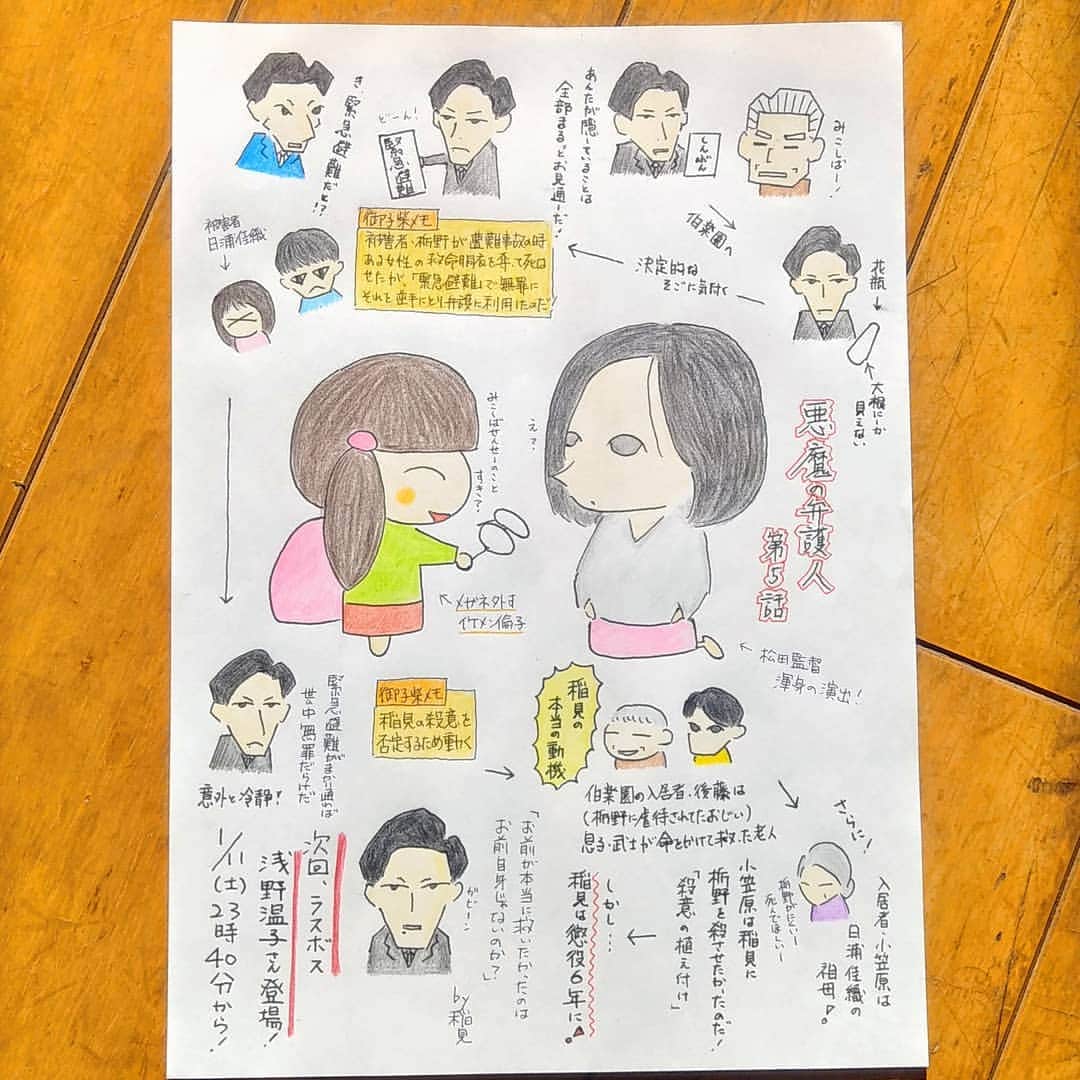 悪魔の弁護人
第5話
みこしばー!
伯楽園へ
花瓶
大根にしか
見えない
決定的な
そこに気付く
しんばん
あんたが隠していることは
全部まるっとお見通しだ!
どーん!
緊急避難
き、緊急避難だと!?
御子柴メモ
被害者・栃野が遭難事故の時
ある女性の救命胴衣を奪って死なせたが、「緊急避難」で無罪に
それを逆手にとり弁護に利用したのだ!
被害者
日浦佳織
みこしばせんせーのこと
すきて?
え?
メガネ外す
イケメン倫子
松田監督
渾身の演出!
緊急避難がまかり通れば
世の中無罪だらけだ
意外と冷静!
御子柴メモ
稲見の殺意を
否定するため動く
稲見の
本当の動機
伯楽園の入居者・後藤は
(栃野に虐待されてたおじい)
息子・武士が命をかけて救った老人
さらに!
入居者・小笠原は
日浦佳織の
祖母!
栃野がにくいー
死んでほしいー
小笠原は稲見に
栃野を殺させたかったのだ!
「殺意の植え付け」
しかし…
稲見は懲役6年に
「お前が本当に救いたかったのは
お前自身じゃないのか?」
by稲見
がびーん
次回、ラスボス
浅野温子さん登場!
1/11(土)23時40分から!